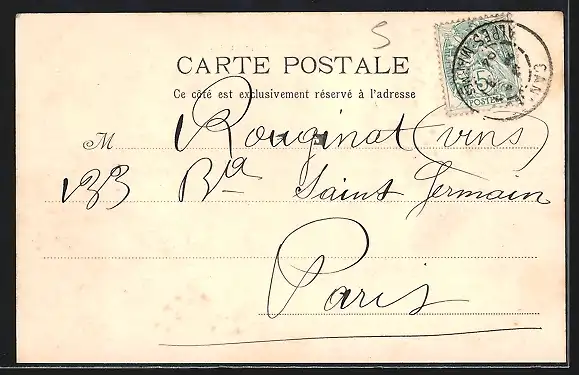 S
CARTE POSTALE
Ce côté est exclusivement réservé à l'adresse
M Rouginat (vins)
133 Bd Saint Germain
Paris
5
POSTES
CAN
ALPES-MAR